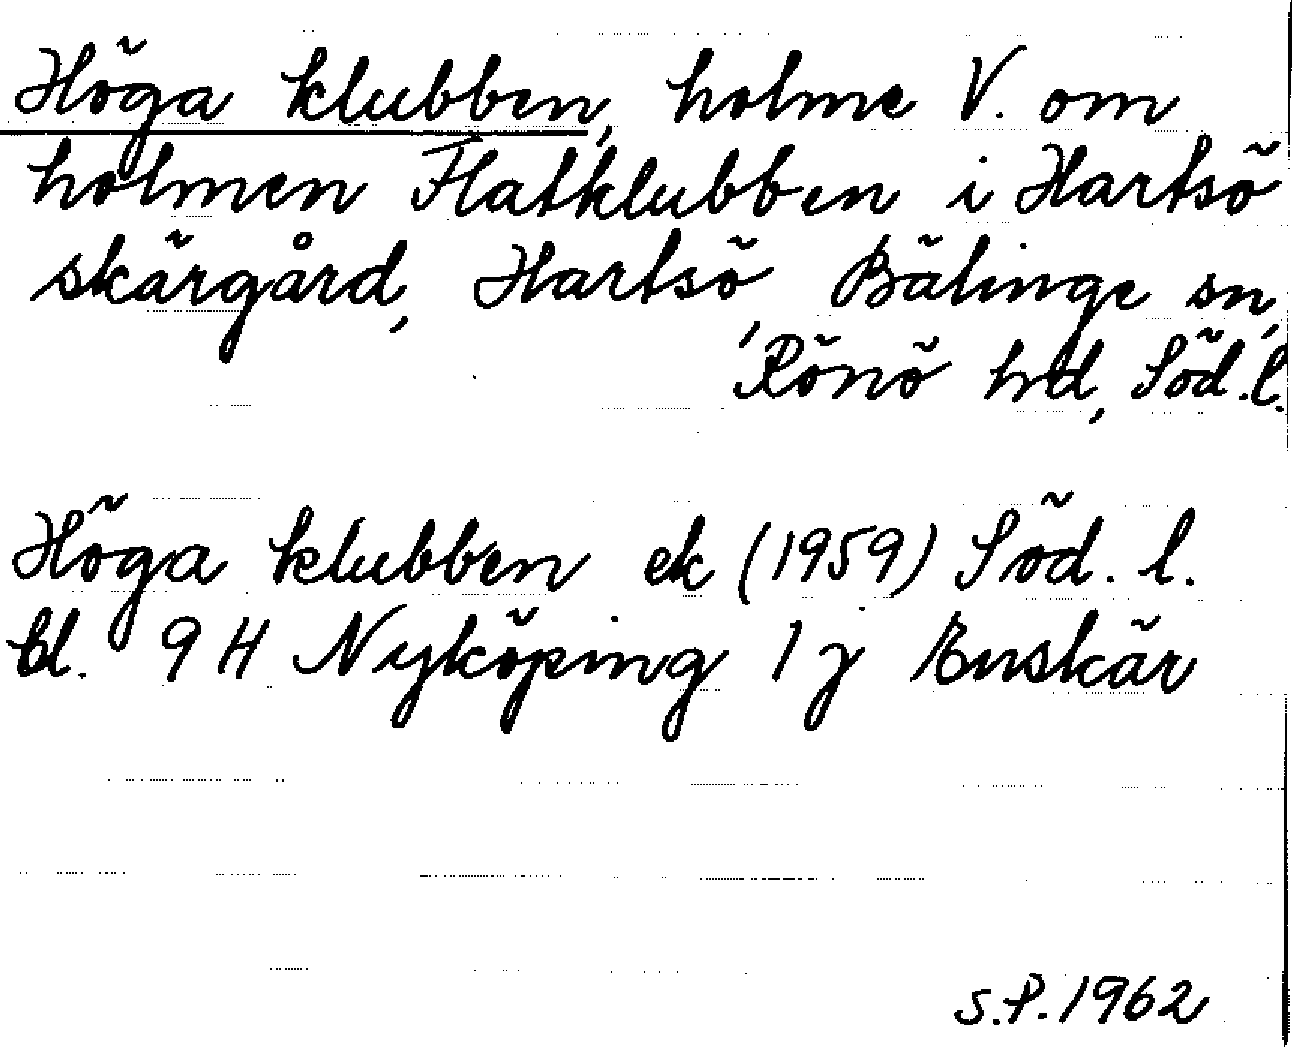 Höga klubben, holme V. om
holmen Flatklubben i Hartsö
skärgård, Hartsö, Bälinge sn,
Rönö hd, Söd.l.
Höga klubben ek (1959) Söd. l.
bl. 9 H Nyköping 1 j Enskär
S.P. 1962